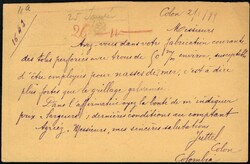 Colon 2/1 /99
Messieurs
Avez-vous dans votre fabrication courante
des toles perforées avec trous de 50 m/m environ, susceptible
d'être employées pour masses de mer, c'est à dire
plus fortes que le grillage galvanisé
Dans l'affirmative ayez la bonté de m'indiquer
poids, largeurs & dernières conditions au comptant
Agréez, Messieurs, mes sincères salutations
Colon
Colombia